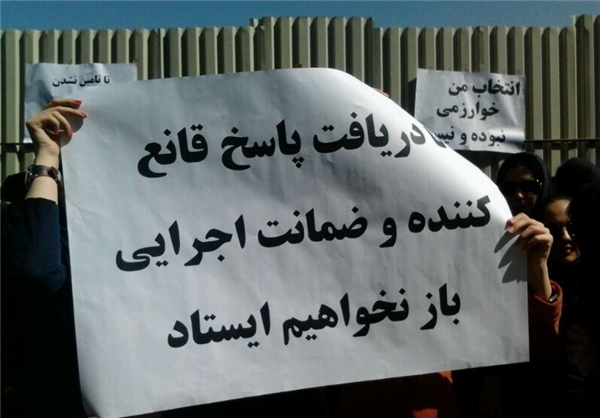 تا تامین نشدن
انتخاب من
خوارزمی
نبوده و
دریافت پاسخ قانع
کننده و ضمانت اجرایی
باز نخواهیم ایستاد